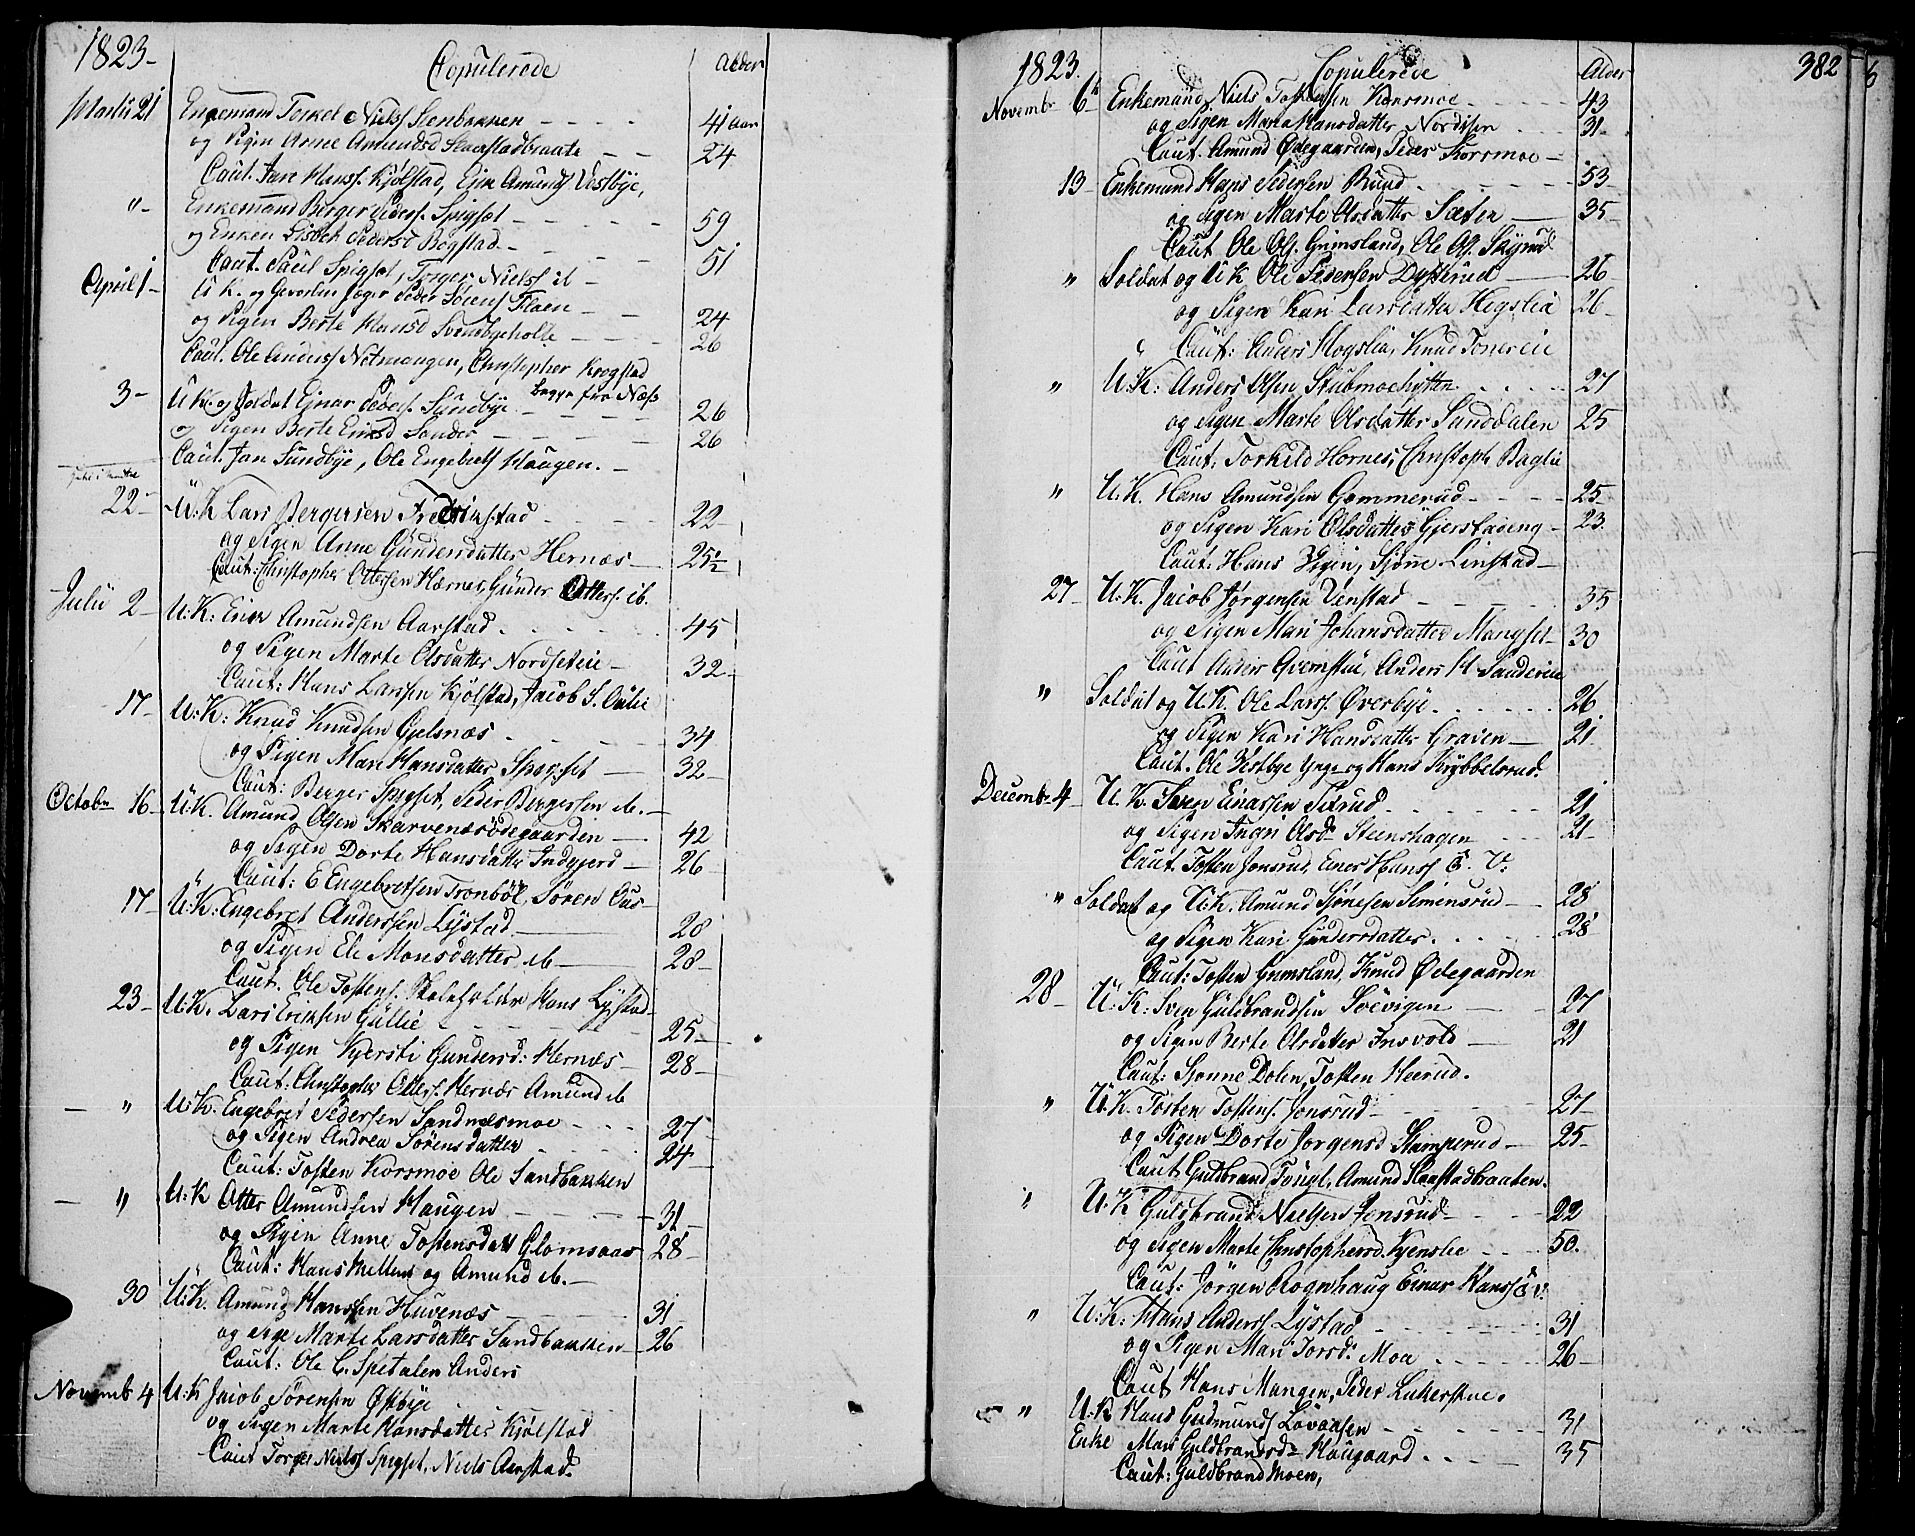 1823-
Copulerede
Alder
Martii 21
Enkemand Torkel Niels Steenbakken - - - - 41 Aar
og Pigen Anne Amundsd Slaastadbraate - - 24
Caut. Jan Hanss. Kjølstad, Ejnr Amunds Vestbye,
"- Enkemand Berger Peders. Spigset - - - 59
og Enken Lisbeth Pedersd Bogstad - - - 51
Caut. Paul Spigset, Torger Nielss ib -
April 1- U. K. og Gevorben Jæger Peder Sørens Floen - 24
og Pigen Berte Hansd - - - 26
Caut. Ole Anderss Notmangen, Christopher Krogstad
begge fra Næs
3- U. K. og Soldat Ejnar Peders. Sundbye - - 26
og Pigen Berte Eriksd Sander - - - - 26
Caut. Jan Sundbye, Ole Engebrets Haugen. -
22- U. K Lars Bergersen Fredrikstad - - - 22-
og Pigen Anne Gundersdatter Hernæs - 25½
Caut: Christopher Ottersen Hernæs, Gunder Otters. ib.
Julii 2- U. K: Erik Amundsen Aarstad - - - 45-
og Pigen Marte Olsdatter Nordseteie - 32-
Caut: Hans Larssen Kjölstad, Jacob S. Oulie
17- U: K: Knud Knudsen Gjelsnæs - - - 34
og Pigen Mari Hansdatter Spigset - 32-
Caut: Berger Spigset, Peder Bergersen ib. -
Octobr 16- U. K. Amund Olsen Skarvenæsödegaarden - 42
og Pigen Dorte Hansdatter Indgjerd - 26-
Caut: E Engebretsen Tronböl, Sören Ous-
17- U: K: Engebret Anderssen Lystad - 28
og Pigen Ele Monsdatter ib - 28-
Caut. Ole Tostens. Skoleholder Hans Lystad-
23- U. K. Lars Eriksen Gullie - - - 25-
og Pigen Kjersti Gundersd: Hernæs - 28-
Caut: Christopher Otters. Hernæs Amund ib
- " U. K. Engebret Pedersen Sandnæsmoe - - - 27-
og Pigen Andrea Sörensdatter - - 24-
Caut: Tosten Korsmoe Ole Sandbakken
- " U: K Otter Amundsen Haugen - - - 31-
og Pigen Anne Tostensdatt Glomsaas 28-
Caut: Hans Mellem og Amund ib. -
30 U: K. Amund Hanssen Huvenæs - - - 31
og Pige Marte Larsdatter Sandbakken - 26
Caut: Ole C. Spetalen Anders
Novemb 4 U: K Jacob Sörensen Østbye - - -
og Pigen Marte Hansdatter Kjölstad
Caut Torger Nielss Spigset, Niels Aarstad.
1823.
Copulerede
Alder
382
Novembr 6te Enkemand Niels Tostensen Korsmoe - - - - 43
og Pigen Maria Hansdatter Nordissen - - - 31-
Caut. Amund Ødegaarden, Peder Korsmoe -
13- Enkemand Hans Pedersen Ruud - - - - 53-
og Pigen Marte Olsdatter Sæten - 35-
Caut Ole Ols. Grimsland, Ole Ols. Skynnd
" Soldat og U K Ole Pedersen Dysterud - 26-
og Pigen Kari Larsdatter Hegslia 26-
Caut: Anders Hogslia, Knud Tonereie
" U. K: Anders Olsen Stubmoehytten - - - - 27
og Pigen Marte Olsdatter Sanddalen 25
Caut: Torkild Hornes, Christoph Baglie
" U. K. Hans Amundsen Gommerud - - - - 25-
og Pigen Kari Olsdatter Gjerstadeng - 23.
Caut. Hans Igen, Sjøne Linstad -
27- U. K. Jacob Jørgensen Venstad - - - - 35
og Pigen Mari Johansdatter Mangset - 30
Caut Anders Grimstue, Anders H Sandereie
" Soldat og U. K. Ole Larss. Øverbye - - - - 26
og Pigen Kari Hansdatter Graven - 21
Caut. Ole Vestbye Ynge og Hans Krybbelsrud.
Decembr 4- U. K. Søren Einarssen Sætrud - - - - 21
og Pigen Ingri Olsdr Steenshagen - - 21-
Caut. Tosten Jonsrud, Einer Hanss E. V.
" Soldat og U: K. Amund Sjönesen Simensrud - 28
og Pigen Kari Gundersdatter - - - - 28-
Caut: Tosten Grimsland, Knud Ødegaarden
28- U. K. Sven Guldbrandsen Soevigen - 27
og Pigen Berte Olsdatter Insvold - 21
Caut: Sjonne Dolen, Tosten Heerud.
" U. K. Tosten Tostens. Jonsrud - - - 27-
og Pigen Dorte Jorgensd Stamperud - 25-
Caut Guldbrand Töngl, Amund Slaastadbraaten.
" U. K Guldbrand Nielsen Jonsrud - - 22
og Pigen Marte Christophersd. Kjenslie - - 50.
Caut: Jörgen Rognhaug Einar Hanss E. V.
" U: K: Hans Anders Lystad - - - - 31
og Pigen Mari Torsdr Moa - - - - 26-
Caut Hans Mangen, Peder Lukerstue.
- " U. K Hans Gudmunds Lövaasen - - - - 31
Enke Mari Guldbrandsdr Haugaard - - - - 35
Caut: Guldbrand Moen,